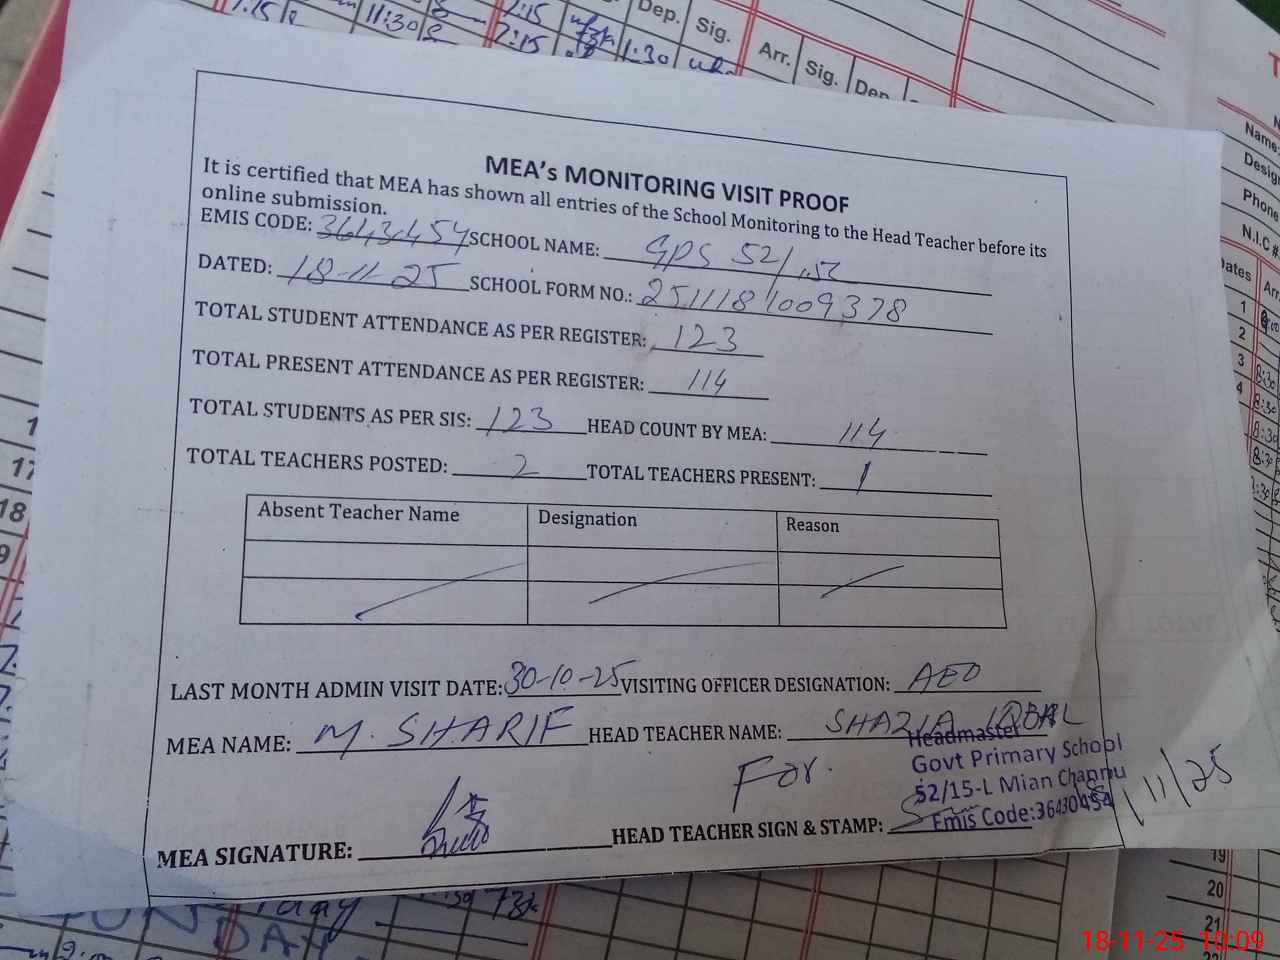 1:15 11:30 1:15
2:15 1:30
Dep. Sig. Arr. Sig. Dep.
MEA's MONITORING VISIT PROOF
It is certified that MEA has shown all entries of the School Monitoring to the Head Teacher before its
online submission.
EMIS CODE: SCHOOL NAME: GPS 52/15L
DATED: 18-11-25 SCHOOL FORM NO.: 2511181009378
TOTAL STUDENT ATTENDANCE AS PER REGISTER: 123
TOTAL PRESENT ATTENDANCE AS PER REGISTER: 114
TOTAL STUDENTS AS PER SIS: 123 HEAD COUNT BY MEA: 114
TOTAL TEACHERS POSTED: 2 TOTAL TEACHERS PRESENT: 1
Absent Teacher Name Designation Reason
LAST MONTH ADMIN VISIT DATE: 30-10-25 VISITING OFFICER DESIGNATION: AEO
MEA NAME: M. SHARIF HEAD TEACHER NAME: SHAZIA IQBAL
For.
Headmaster
Govt Primary School
52/15-L Mian Channu
Emis Code:36430454
MEA SIGNATURE: HEAD TEACHER SIGN & STAMP:
18/11/25
Name:
Phone
N.I.C #
Arr
1
2
3
4
8:30
8:30
8:30
8:30
17
18
19
20
21
DAY
18-11-25 10:09